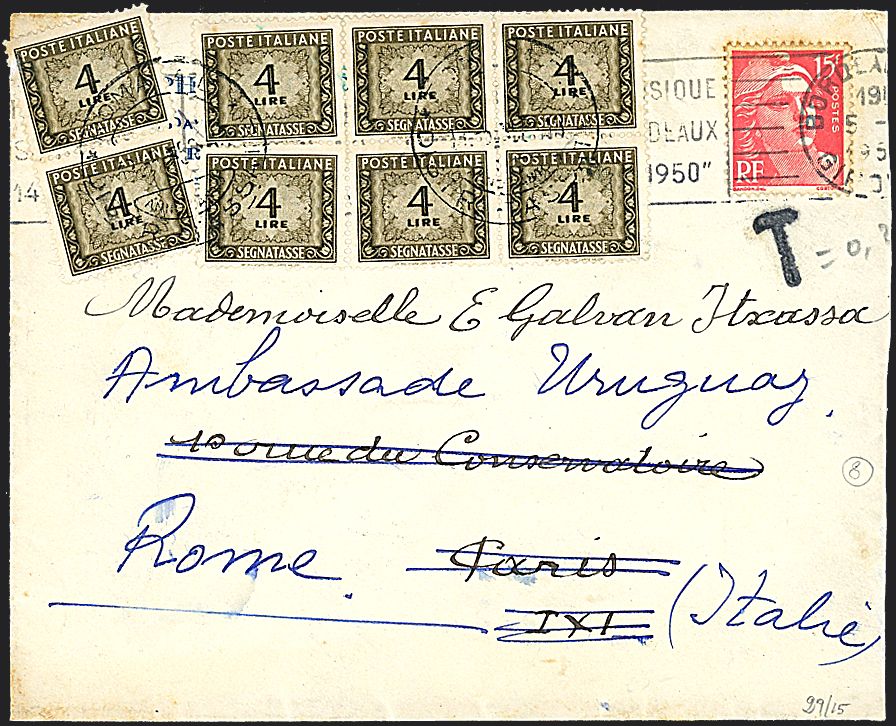 POSTE ITALIANE
4
LIRE
SEGNATASSE
POSTE ITALIANE
4
LIRE
SEGNATASSE
POSTE ITALIANE
4
LIRE
SEGNATASSE
POSTE ITALIANE
4
LIRE
SEGNATASSE
POSTE ITALIANE
4
LIRE
SEGNATASSE
POSTE ITALIANE
4
LIRE
SEGNATASSE
POSTE ITALIANE
4
LIRE
SEGNATASSE
POSTE ITALIANE
4
LIRE
SEGNATASSE
SIQUE
DEAUX
1950"
15F
POSTES
RF
GANDON
BORDEAU
GIRO
14
T = 0,
Mademoiselle E Galvan Itxassa
Ambassade Uruguay.
10 rue du Conservatoire
8
Rome. Paris
IXI (Italie)
29/15